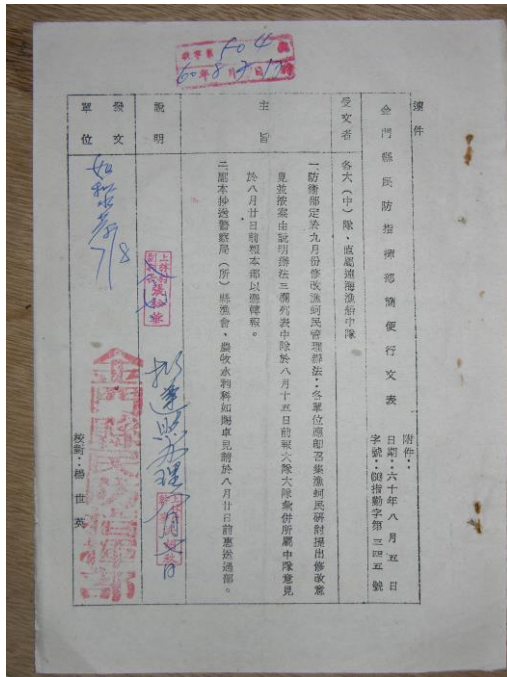 速件
金門縣民防指揮部簡便行文表
附件：
日期：六十年八月五日
字號：指勤字第三四五號
受文者
各大（中）隊、直屬連海漁船中隊
主旨
一、防衛部定於九月份修改漁蚵民管理辦法：各單位應即召集漁蚵民研討提出修改意
見並按案由說明辦法三欄列表中隊於八月十五日前報大隊大隊彙併所屬中隊意見
於八月廿日前報本部以憑轉報。
二、副本抄送警察局（所）縣漁會、農收水利科如陽卓見請於八月廿日前惠送過部。
說明
發文
單位
校對：楊世英
金門縣民防指揮部
504
60年8月
擬遵照办理